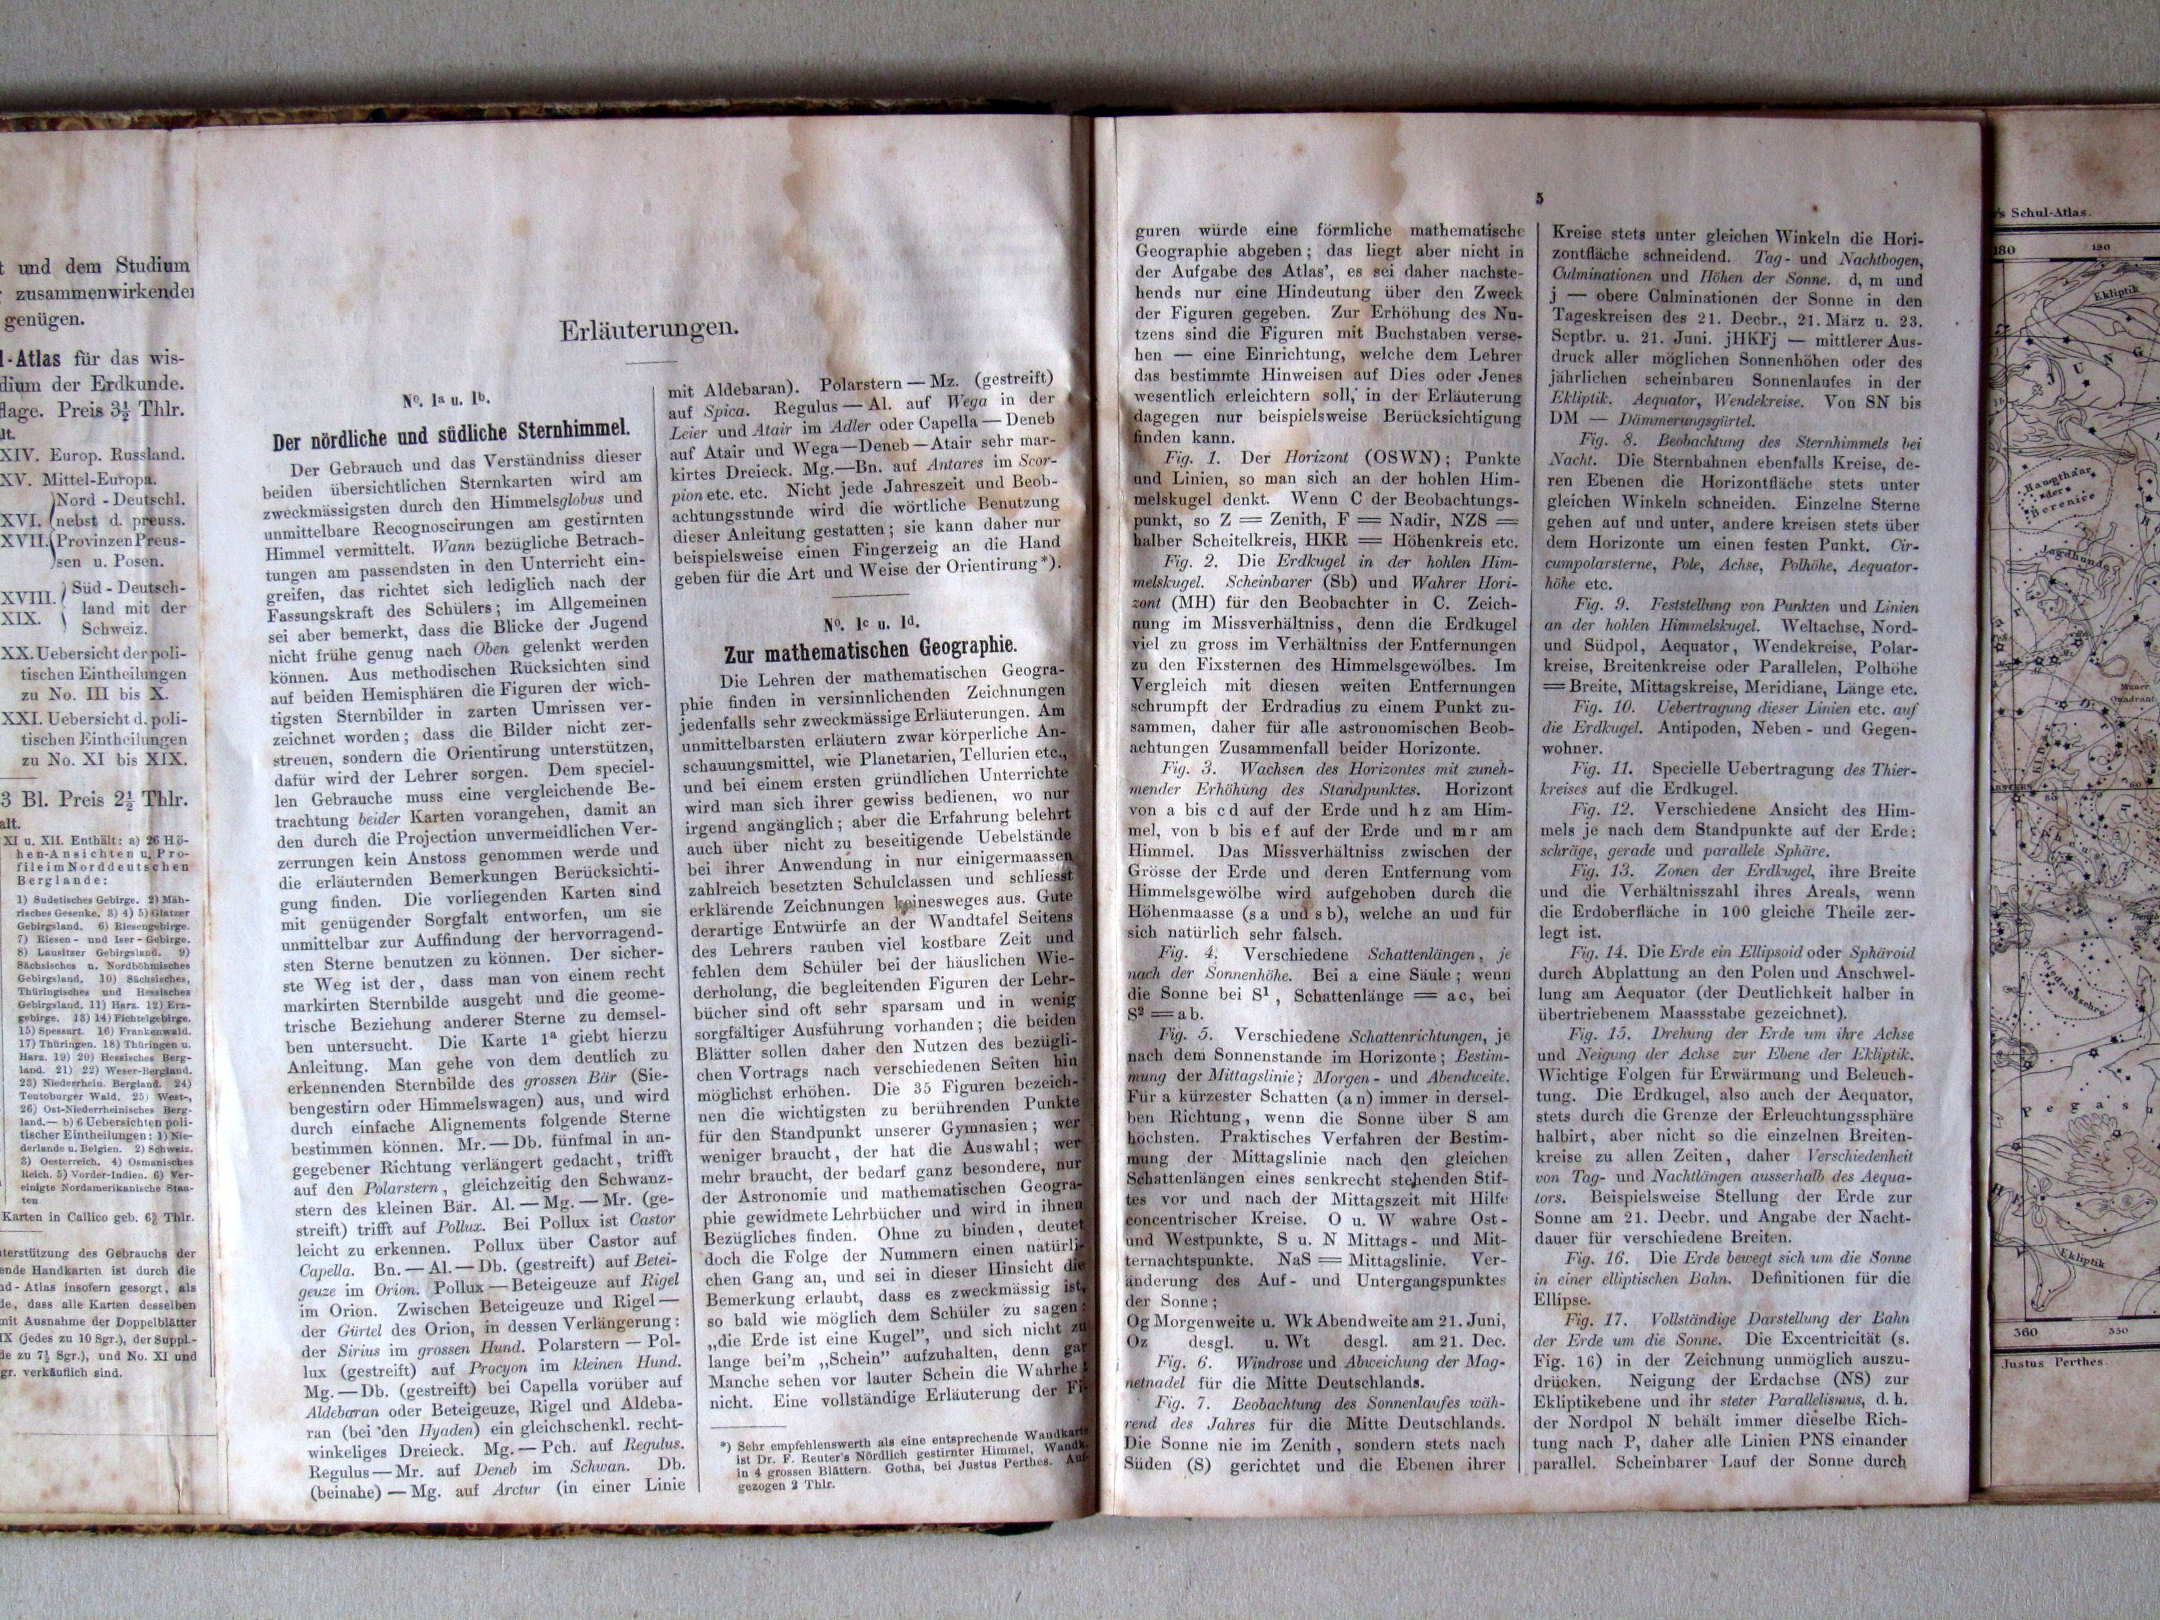 t und dem Studium
zusammenwirkender
genügen.
l-Atlas für das wis-
dium der Erdkunde.
flage. Preis 3½ Thlr.
lt.
XIV. Europ. Russland.
XV. Mittel-Europa.
Nord-Deutschl.
XVI. nebst d. preuss.
XVII. Provinzen Preus-
sen u. Posen.
XVIII. Süd-Deutsch-
land mit der
XIX.
Schweiz.
XX. Uebersicht der poli-
tischen Eintheilungen
zu No. III bis X.
XXI. Uebersicht d. poli-
tischen Eintheilungen
zu No. XI bis XIX.
3 Bl. Preis 2½ Thlr.
alt.
XI u. XII. Enthält: a) 26 Hö-
hen-Ansichten u. Pro-
file im Norddeutschen
Berglande:
1) Sudetisches Gebirge. 2) Mäh-
risches Gesenke. 3) 4) 5) Glatzer
Gebirgsland. 6) Riesengebirge.
7) Riesen- und Iser-Gebirge.
8) Lausitzer Gebirgsland. 9)
Sächsisches u. Nordböhmisches
Gebirgsland. 10) Sächsisches,
Thüringisches und Hessisches
Gebirgsland. 11) Harz. 12) Erz-
gebirge. 13) 14) Fichtelgebirge.
15) Spessart. 16) Frankenwald.
17) Thüringen. 18) Thüringen u.
Harz. 19) 20) Hessisches Berg-
land. 21) 22) Weser-Bergland.
23) Niederrhein. Bergland. 24)
Teutoburger Wald. 25) West-,
26) Ost-Niederrheinisches Berg-
land.— b) 6 Uebersichten poli-
tischer Eintheilungen: 1) Nie-
derlande u. Belgien. 2) Schweiz.
3) Oesterreich. 4) Osmanisches
Reich. 5) Vorder-Indien. 6) Ver-
einigte Nordamerikanische Staa-
ten
Karten in Callico geb. 6⅔ Thlr.
nterstützung des Gebrauchs der
ende Handkarten ist durch die
nd-Atlas insofern gesorgt, als
de, dass alle Karten desselben
mit Ausnahme der Doppelblätter
IX (jedes zu 10 Sgr.), der Suppl.-
de zu 7½ Sgr.), und No. XI und
gr. verkäuflich sind.
Erläuterungen.
No. 1a u. 1b.
Der nördliche und südliche Sternhimmel.
Der Gebrauch und das Verständniss dieser
beiden übersichtlichen Sternkarten wird am
zweckmässigsten durch den Himmelsglobus und
unmittelbare Recognoscirungen am gestirnten
Himmel vermittelt. Wann bezügliche Betrach-
tungen am passendsten in den Unterricht ein-
greifen, das richtet sich lediglich nach der
Fassungskraft des Schülers; im Allgemeinen
sei aber bemerkt, dass die Blicke der Jugend
nicht frühe genug nach Oben gelenkt werden
können. Aus methodischen Rücksichten sind
auf beiden Hemisphären die Figuren der wich-
tigsten Sternbilder in zarten Umrissen ver-
zeichnet worden; dass die Bilder nicht zer-
streuen, sondern die Orientirung unterstützen,
dafür wird der Lehrer sorgen. Dem speciel-
len Gebrauche muss eine vergleichende Be-
trachtung beider Karten vorangehen, damit an
den durch die Projection unvermeidlichen Ver-
zerrungen kein Anstoss genommen werde und
die erläuternden Bemerkungen Berücksichti-
gung finden. Die vorliegenden Karten sind
mit genügender Sorgfalt entworfen, um sie
unmittelbar zur Auffindung der hervorragend-
sten Sterne benutzen zu können. Der sicher-
ste Weg ist der, dass man von einem recht
markirten Sternbilde ausgeht und die geome-
trische Beziehung anderer Sterne zu demsel-
ben untersucht. Die Karte 1a giebt hierzu
Anleitung. Man gehe von dem deutlich zu
erkennenden Sternbilde des grossen Bär (Sie-
bengestirn oder Himmelswagen) aus, und wird
durch einfache Alignements folgende Sterne
bestimmen können. Mr. — Db. fünfmal in an-
gegebener Richtung verlängert gedacht, trifft
auf den Polarstern, gleichzeitig den Schwanz-
stern des kleinen Bär. Al. — Mg. — Mr. (ge-
streift) trifft auf Pollux. Bei Pollux ist Castor
leicht zu erkennen. Pollux über Castor auf
Capella. Bn. — Al. — Db. (gestreift) auf Betei-
geuze im Orion. Pollux — Beteigeuze auf Rigel
im Orion. Zwischen Beteigeuze und Rigel —
der Gürtel des Orion, in dessen Verlängerung:
der Sirius im grossen Hund. Polarstern — Pol-
lux (gestreift) auf Procyon im kleinen Hund.
Mg. — Db. (gestreift) bei Capella vorüber auf
Aldebaran oder Beteigeuze, Rigel und Aldeba-
ran (bei den Hyaden) ein gleichschenkl. recht-
winkeliges Dreieck. Mg. — Pch. auf Regulus.
Regulus — Mr. auf Deneb im Schwan. Db.
(beinahe) — Mg. auf Arctur (in einer Linie
mit Aldebaran). Polarstern — Mz. (gestreift)
auf Spica. Regulus — Al. auf Wega in der
Leier und Atair im Adler oder Capella — Deneb
auf Atair und Wega — Deneb — Atair sehr mar-
kirtes Dreieck. Mg. — Bn. auf Antares im Scor-
pion etc. etc. Nicht jede Jahreszeit und Beob-
achtungsstunde wird die wörtliche Benutzung
dieser Anleitung gestatten; sie kann daher nur
beispielsweise einen Fingerzeig an die Hand
geben für die Art und Weise der Orientirung*).
No. 1c u. 1d.
Zur mathematischen Geographie.
Die Lehren der mathematischen Geogra-
phie finden in versinnlichenden Zeichnungen
jedenfalls sehr zweckmässige Erläuterungen. Am
unmittelbarsten erläutern zwar körperliche An-
schauungsmittel, wie Planetarien, Tellurien etc.,
und bei einem ersten gründlichen Unterrichte
wird man sich ihrer gewiss bedienen, wo nur
irgend angänglich; aber die Erfahrung belehrt
auch über nicht zu beseitigende Uebelstände
bei ihrer Anwendung in nur einigermaassen
zahlreich besetzten Schulclassen und schliesst
erklärende Zeichnungen keinesweges aus. Gute
derartige Entwürfe an der Wandtafel Seitens
des Lehrers rauben viel kostbare Zeit und
fehlen dem Schüler bei der häuslichen Wie-
derholung, die begleitenden Figuren der Lehr-
bücher sind oft sehr sparsam und in wenig
sorgfältiger Ausführung vorhanden; die beiden
Blätter sollen daher den Nutzen des bezügli-
chen Vortrags nach verschiedenen Seiten hin
möglichst erhöhen. Die 35 Figuren bezeich-
nen die wichtigsten zu berührenden Punkte
für den Standpunkt unserer Gymnasien; wer
weniger braucht, der hat die Auswahl; wer
mehr braucht, der bedarf ganz besondere, nur
der Astronomie und mathematischen Geogra-
phie gewidmete Lehrbücher und wird in ihnen
Bezügliches finden. Ohne zu binden, deutet
doch die Folge der Nummern einen natürli-
chen Gang an, und sei in dieser Hinsicht die
Bemerkung erlaubt, dass es zweckmässig ist,
so bald wie möglich dem Schüler zu sagen:
„die Erde ist eine Kugel”, und sich nicht zu
lange bei'm „Schein” aufzuhalten, denn gar
Manche sehen vor lauter Schein die Wahrhei
nicht. Eine vollständige Erläuterung der Fi-
*) Sehr empfehlenswerth als eine entsprechende Wandkarte
ist Dr. F. Reuter's Nördlich gestirnter Himmel, Wandk.
in 4 grossen Blättern. Gotha, bei Justus Perthes. Auf-
gezogen 2 Thlr.
5
guren würde eine förmliche mathematische
Geographie abgeben; das liegt aber nicht in
der Aufgabe des Atlas', es sei daher nachste-
hends nur eine Hindeutung über den Zweck
der Figuren gegeben. Zur Erhöhung des Nu-
tzens sind die Figuren mit Buchstaben verse-
hen — eine Einrichtung, welche dem Lehrer
das bestimmte Hinweisen auf Dies oder Jenes
wesentlich erleichtern soll, in der Erläuterung
dagegen nur beispielsweise Berücksichtigung
finden kann.
Fig. 1. Der Horizont (OSWN); Punkte
und Linien, so man sich an der hohlen Him-
melskugel denkt. Wenn C der Beobachtungs-
punkt, so Z = Zenith, F = Nadir, NZS =
halber Scheitelkreis, HKR = Höhenkreis etc.
Fig. 2. Die Erdkugel in der hohlen Him-
melskugel. Scheinbarer (Sb) und Wahrer Hori-
zont (MH) für den Beobachter in C. Zeich-
nung im Missverhältniss, denn die Erdkugel
viel zu gross im Verhältniss der Entfernungen
zu den Fixsternen des Himmelsgewölbes. Im
Vergleich mit diesen weiten Entfernungen
schrumpft der Erdradius zu einem Punkt zu-
sammen, daher für alle astronomischen Beob-
achtungen Zusammenfall beider Horizonte.
Fig. 3. Wachsen des Horizontes mit zuneh-
mender Erhöhung des Standpunktes. Horizont
von a bis cd auf der Erde und hz am Him-
mel, von b bis ef auf der Erde und mr am
Himmel. Das Missverhältniss zwischen der
Grösse der Erde und deren Entfernung vom
Himmelsgewölbe wird aufgehoben durch die
Höhenmaasse (sa und sb), welche an und für
sich natürlich sehr falsch.
Fig. 4. Verschiedene Schattenlängen, je
nach der Sonnenhöhe. Bei a eine Säule; wenn
die Sonne bei S¹, Schattenlänge = ac, bei
S² = ab.
Fig. 5. Verschiedene Schattenrichtungen, je
nach dem Sonnenstande im Horizonte; Bestim-
mung der Mittagslinie; Morgen- und Abendweite.
Für a kürzester Schatten (an) immer in dersel-
ben Richtung, wenn die Sonne über S am
höchsten. Praktisches Verfahren der Bestim-
mung der Mittagslinie nach den gleichen
Schattenlängen eines senkrecht stehenden Stif-
tes vor und nach der Mittagszeit mit Hilfe
concentrischer Kreise. O u. W wahre Ost-
und Westpunkte, S u. N Mittags- und Mit-
ternachtspunkte. NaS = Mittagslinie. Ver-
änderung des Auf- und Untergangspunktes
der Sonne;
Og Morgenweite u. Wk Abendweite am 21. Juni,
Oz desgl. u. Wt desgl. am 21. Dec.
Fig. 6. Windrose und Abweichung der Mag-
netnadel für die Mitte Deutschlands.
Fig. 7. Beobachtung des Sonnenlaufes wäh-
rend des Jahres für die Mitte Deutschlands.
Die Sonne nie im Zenith, sondern stets nach
Süden (S) gerichtet und die Ebenen ihrer
Kreise stets unter gleichen Winkeln die Hori-
zontfläche schneidend. Tag- und Nachtbogen,
Culminationen und Höhen der Sonne. d, m und
j — obere Culminationen der Sonne in den
Tageskreisen des 21. Decbr., 21. März u. 23.
Septbr. u. 21. Juni. jHKFj — mittlerer Aus-
druck aller möglichen Sonnenhöhen oder des
jährlichen scheinbaren Sonnenlaufes in der
Ekliptik. Aequator, Wendekreise. Von SN bis
DM — Dämmerungsgürtel.
Fig. 8. Beobachtung des Sternhimmels bei
Nacht. Die Sternbahnen ebenfalls Kreise, de-
ren Ebenen die Horizontfläche stets unter
gleichen Winkeln schneiden. Einzelne Sterne
gehen auf und unter, andere kreisen stets über
dem Horizonte um einen festen Punkt. Cir-
cumpolarsterne, Pole, Achse, Polhöhe, Aequator-
höhe etc.
Fig. 9. Feststellung von Punkten und Linien
an der hohlen Himmelskugel. Weltachse, Nord-
und Südpol, Aequator, Wendekreise, Polar-
kreise, Breitenkreise oder Parallelen, Polhöhe
= Breite, Mittagskreise, Meridiane, Länge etc.
Fig. 10. Uebertragung dieser Linien etc. auf
die Erdkugel. Antipoden, Neben- und Gegen-
wohner.
Fig. 11. Specielle Uebertragung des Thier-
kreises auf die Erdkugel.
Fig. 12. Verschiedene Ansicht des Him-
mels je nach dem Standpunkte auf der Erde:
schräge, gerade und parallele Sphäre.
Fig. 13. Zonen der Erdkugel, ihre Breite
und die Verhältnisszahl ihres Areals, wenn
die Erdoberfläche in 100 gleiche Theile zer-
legt ist.
Fig. 14. Die Erde ein Ellipsoid oder Sphäroid
durch Abplattung an den Polen und Anschwel-
lung am Aequator (der Deutlichkeit halber in
übertriebenem Maassstabe gezeichnet).
Fig. 15. Drehung der Erde um ihre Achse
und Neigung der Achse zur Ebene der Ekliptik.
Wichtige Folgen für Erwärmung und Beleuch-
tung. Die Erdkugel, also auch der Aequator,
stets durch die Grenze der Erleuchtungssphäre
halbirt, aber nicht so die einzelnen Breiten-
kreise zu allen Zeiten, daher Verschiedenheit
von Tag- und Nachtlängen ausserhalb des Aequa-
tors. Beispielsweise Stellung der Erde zur
Sonne am 21. Decbr. und Angabe der Nacht-
dauer für verschiedene Breiten.
Fig. 16. Die Erde bewegt sich um die Sonne
in einer elliptischen Bahn. Definitionen für die
Ellipse.
Fig. 17. Vollständige Darstellung der Bahn
der Erde um die Sonne. Die Excentricität (s.
Fig. 16) in der Zeichnung unmöglich auszu-
drücken. Neigung der Erdachse (NS) zur
Ekliptikebene und ihr steter Parallelismus, d. h.
der Nordpol N behält immer dieselbe Rich-
tung nach P, daher alle Linien PNS einander
parallel. Scheinbarer Lauf der Sonne durch
's Schul-Atlas.
180
Ekliptik
JUNG
Haupthaar
der
Berenice
Jagdhunde
Mauer
Quadrant
Friedrichsehre
Pegasu
Ekliptik
360
350
Justus Perthes.